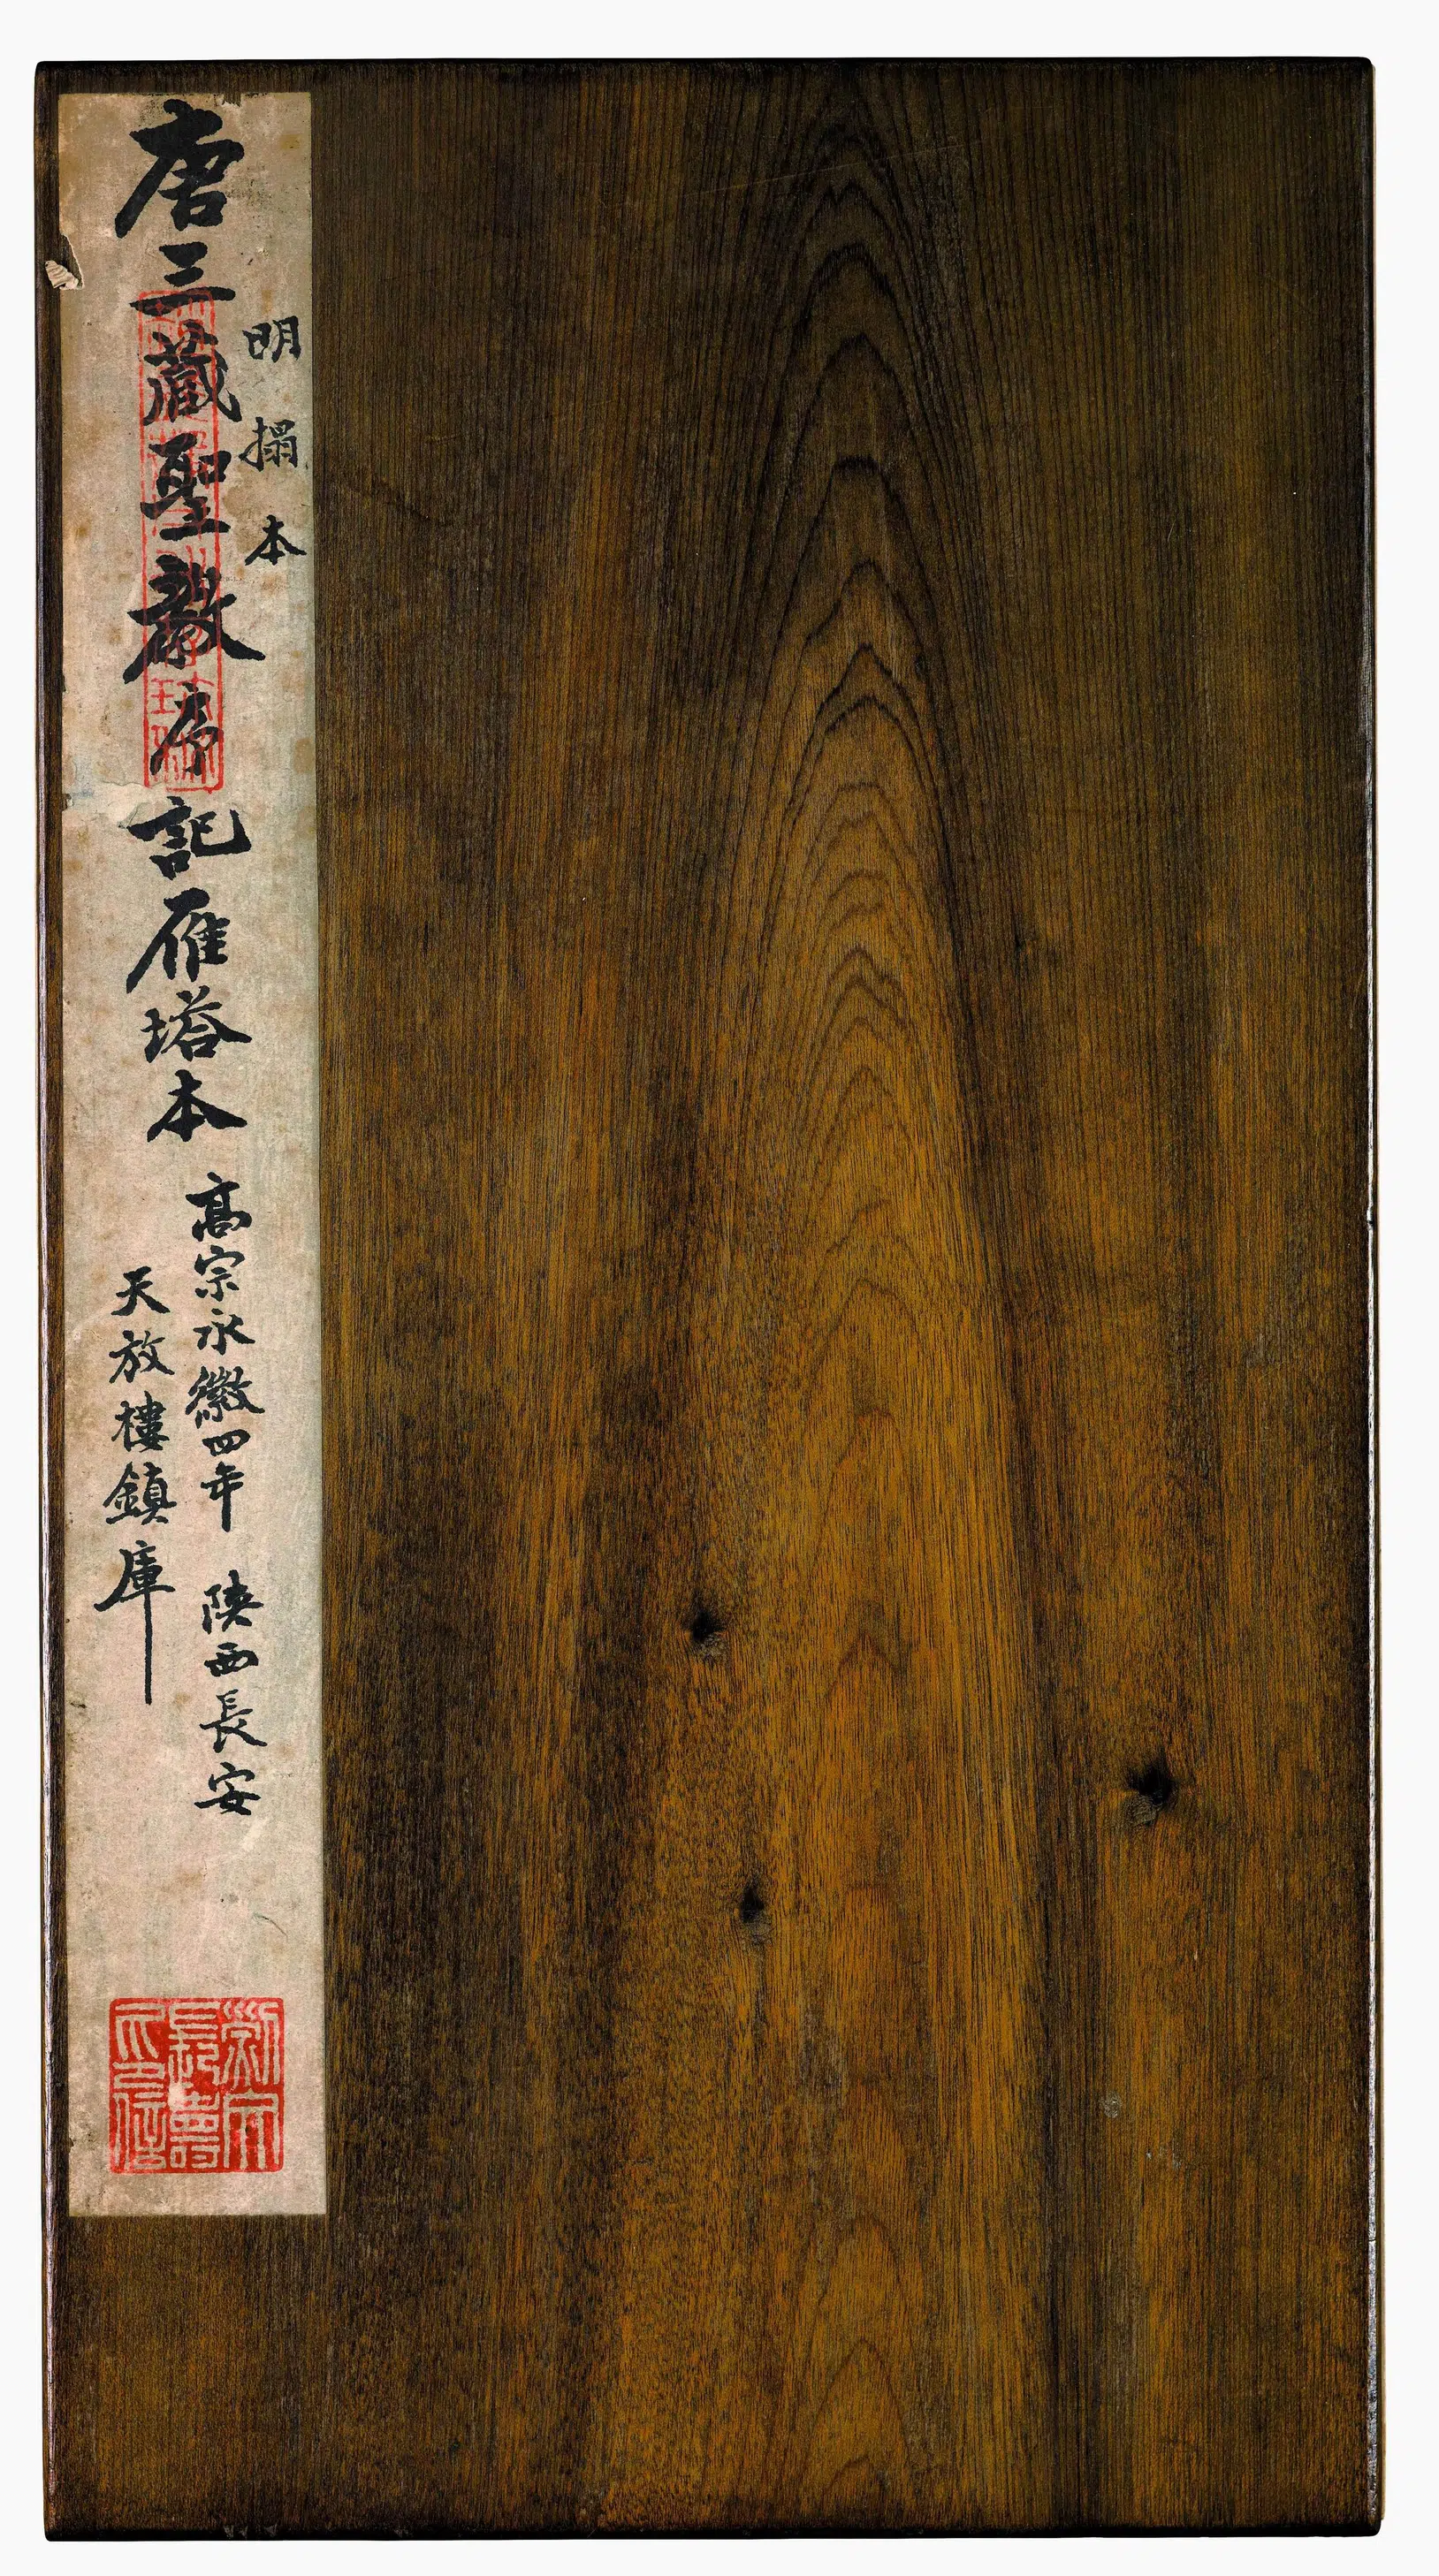 明搨本
唐三藏聖教序記雁塔本
高宗永徽四年 陝西長安
天放樓鎮庫